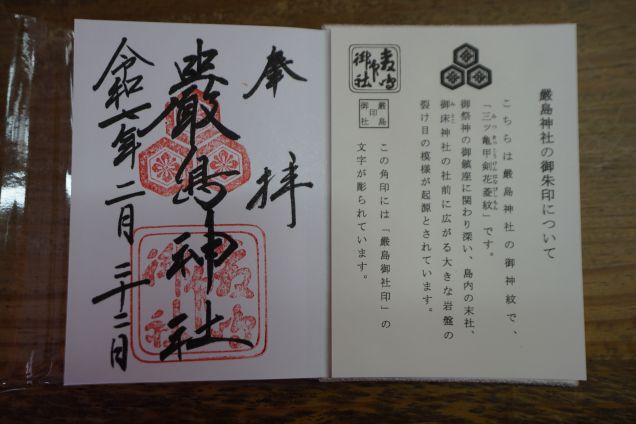 嚴島神社の御朱印について
こちらは嚴島神社の御神紋で、
みつきっこうけんはなびしもん
「三ツ亀甲剣花菱紋」です。
御祭神の御鎮座に関わり深い、島内の末社、
みとこ
御床神社の社前に広がる大きな岩盤の
裂け目の模様が起源とされています。
この角印には「嚴島御社印」の
文字が彫られています。
嚴島
印
御社
奉拝
嚴島神社
令和六年二月二十二日